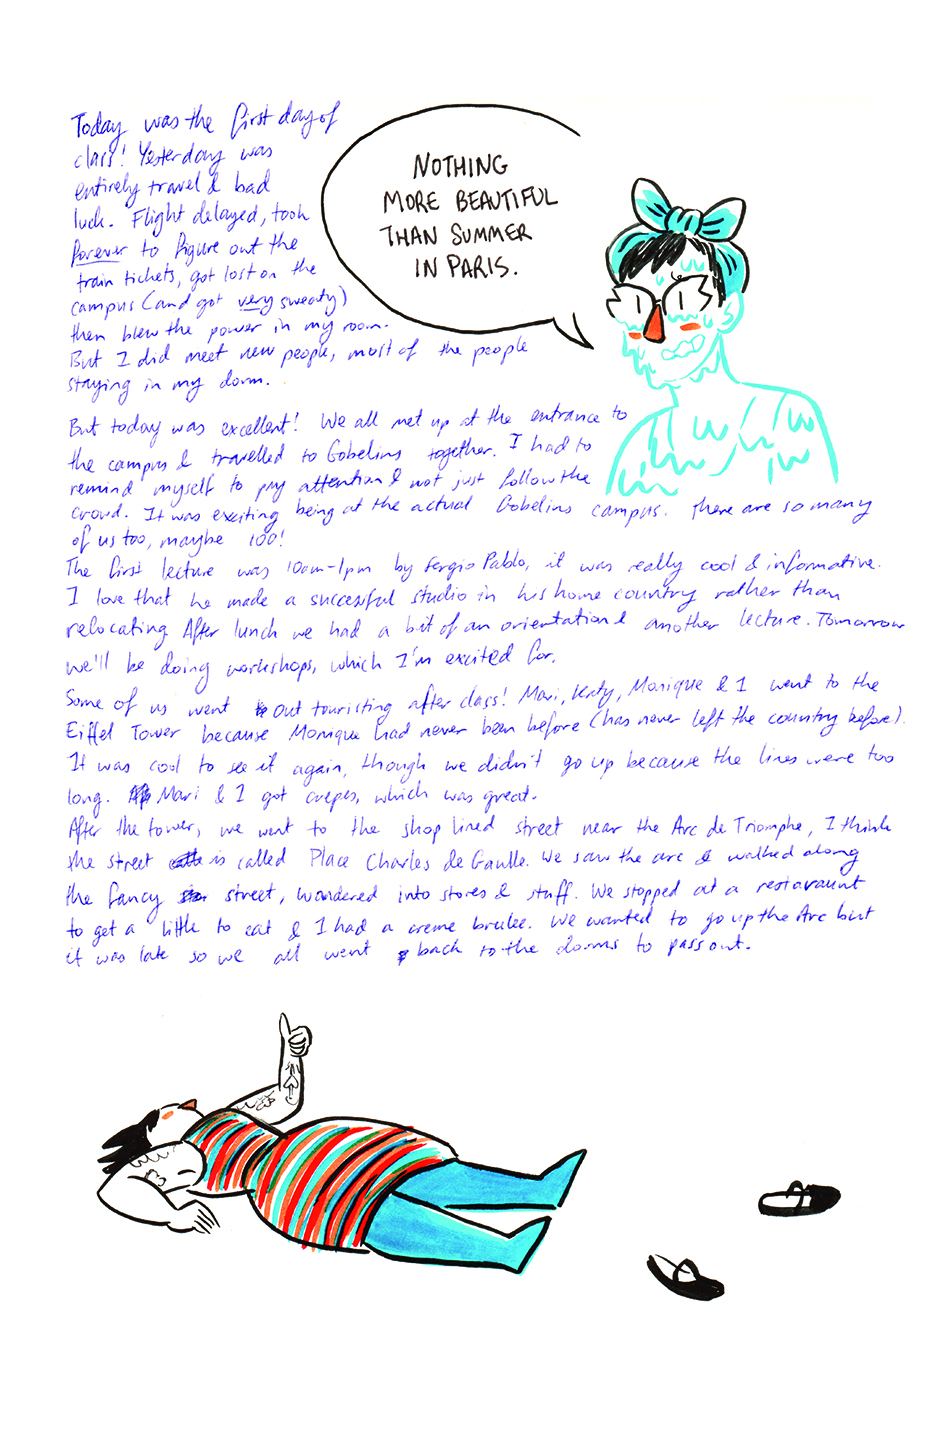 Today was the first day of
class! Yesterday was
entirely travel & bad
luck. Flight delayed, took
forever to figure out the
train tickets, got lost on the
campus (and got very sweaty)
then blew the power in my room.
But I did meet new people, most of the people
staying in my dorm.
NOTHING
MORE BEAUTIFUL
THAN SUMMER
IN PARIS.
But today was excellent! We all met up at the entrance to
the campus & travelled to Gobelins together. I had to
remind myself to pay attention & not just follow the
crowd. It was exciting being at the actual Gobelins campus. There are so many
of us too, maybe 100!
The first lecture was 10am-1pm by Sergio Pablo, it was really cool & informative.
I love that he made a successful studio in his home country rather than
relocating. After lunch we had a bit of an orientation & another lecture. Tomorrow
we'll be doing workshops, which I'm excited for.
Some of us went out touristing after class! Mari, Katy, Monique & I went to the
Eiffel Tower because Monique had never been before (has never left the country before).
It was cool to see it again, though we didn't go up because the lines were too
long. Mari & I got crepes, which was great.
After the tower, we went to the shop lined street near the Arc de Triomphe, I think
the street is called Place Charles de Gaulle. We saw the arc & walked along
the fancy street, wandered into stores & stuff. We stopped at a restaraunt
to get a little to eat & I had a creme brulee. We wanted to go up the Arc but
it was late so we all went back to the dorms to pass out.